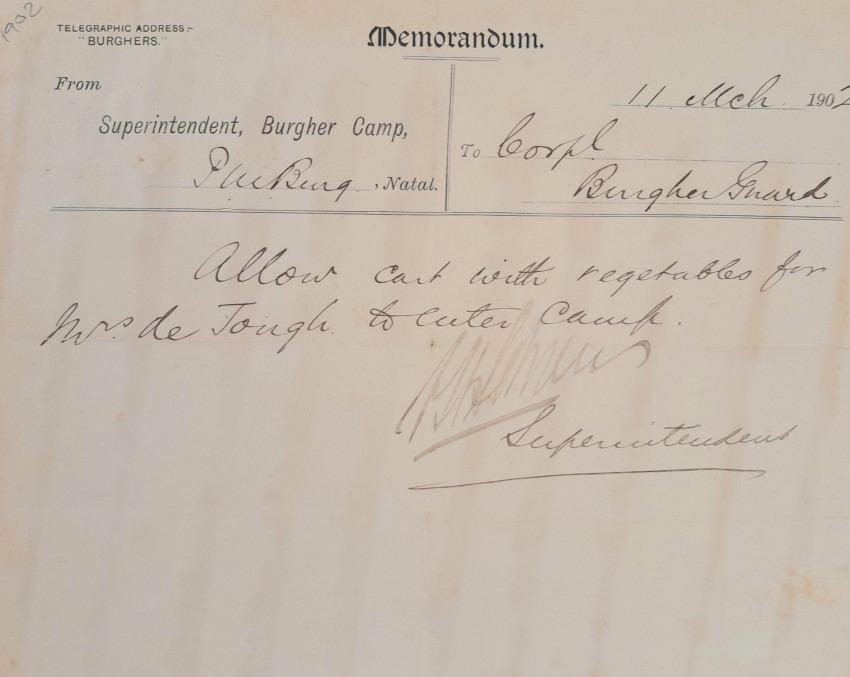 1902
TELEGRAPHIC ADDRESS:-
"BURGHERS."
Memorandum.
From
11 Mch. 1902
Superintendent, Burgher Camp,
To Corpl
PMBurg, Natal.
Burgher Guard.
Allow cart with vegetables for
Mrs. de Jongh. to enter Camp.
Superintendent